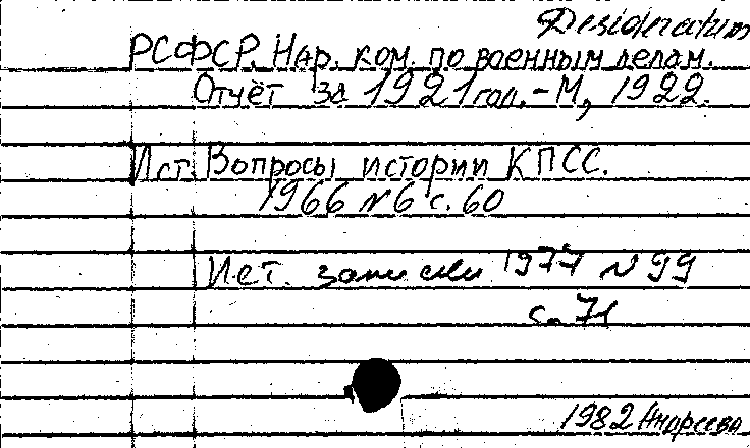 Desideratum
РСФСР. Нар. ком. по военным делам.
Отчёт за 1921 год. - М., 1922.
Ист. Вопросы истории КПСС.
1966 № 6 с. 60
Ист. записки 1977 № 99
с. 71
1982 Андреева